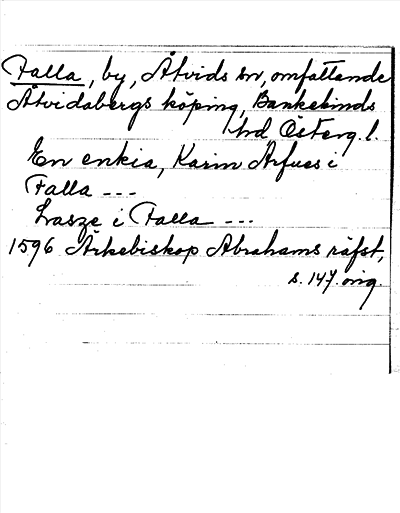 Falla, by, Åtvids sn, omfattande
Åtvidabergs köping, Bankekinds
hd Österg. l.
En enkia, Karin Arfues i
Falla ---
Lasze i Falla ---
1596 Ärkebiskop Abrahams räfst,
s. 147. orig.